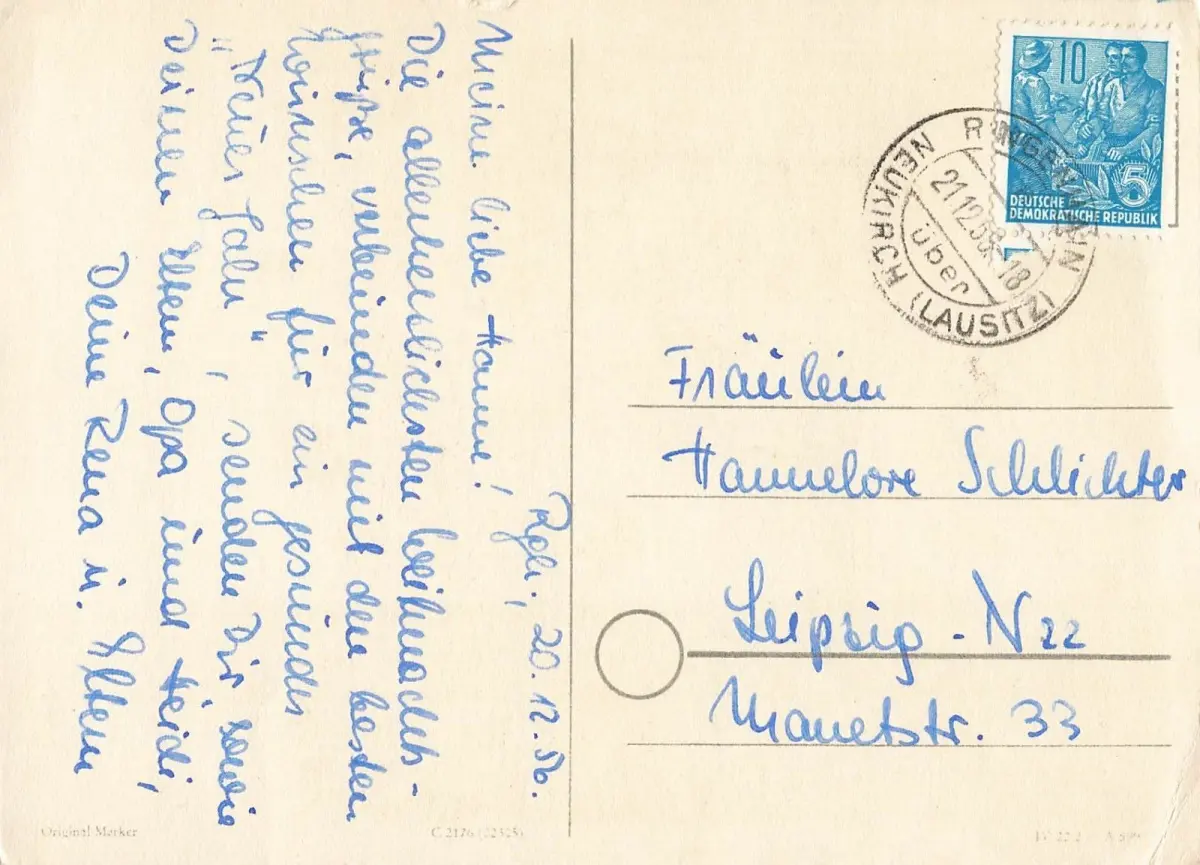 Rghs., 20.12.56.
Meine liebe Hanne!
Die allerherzlichsten Weihnachts-
grüße, verbunden mit den besten
Wünschen für ein gesundes
"Neues Jahr", senden Dir sowie
Deinen Eltern, Opa und Heidi,
Deine Rena u. Eltern
10
5
DEUTSCHE
DEMOKRATISCHE REPUBLIK
1
NEUKIRCH (LAUSITZ)
über
21.12.56.-18
Fräulein
Hannelore Schlichter
Leipzig - N22
Manetstr. 33
Original Merker
C 2176 (22525)